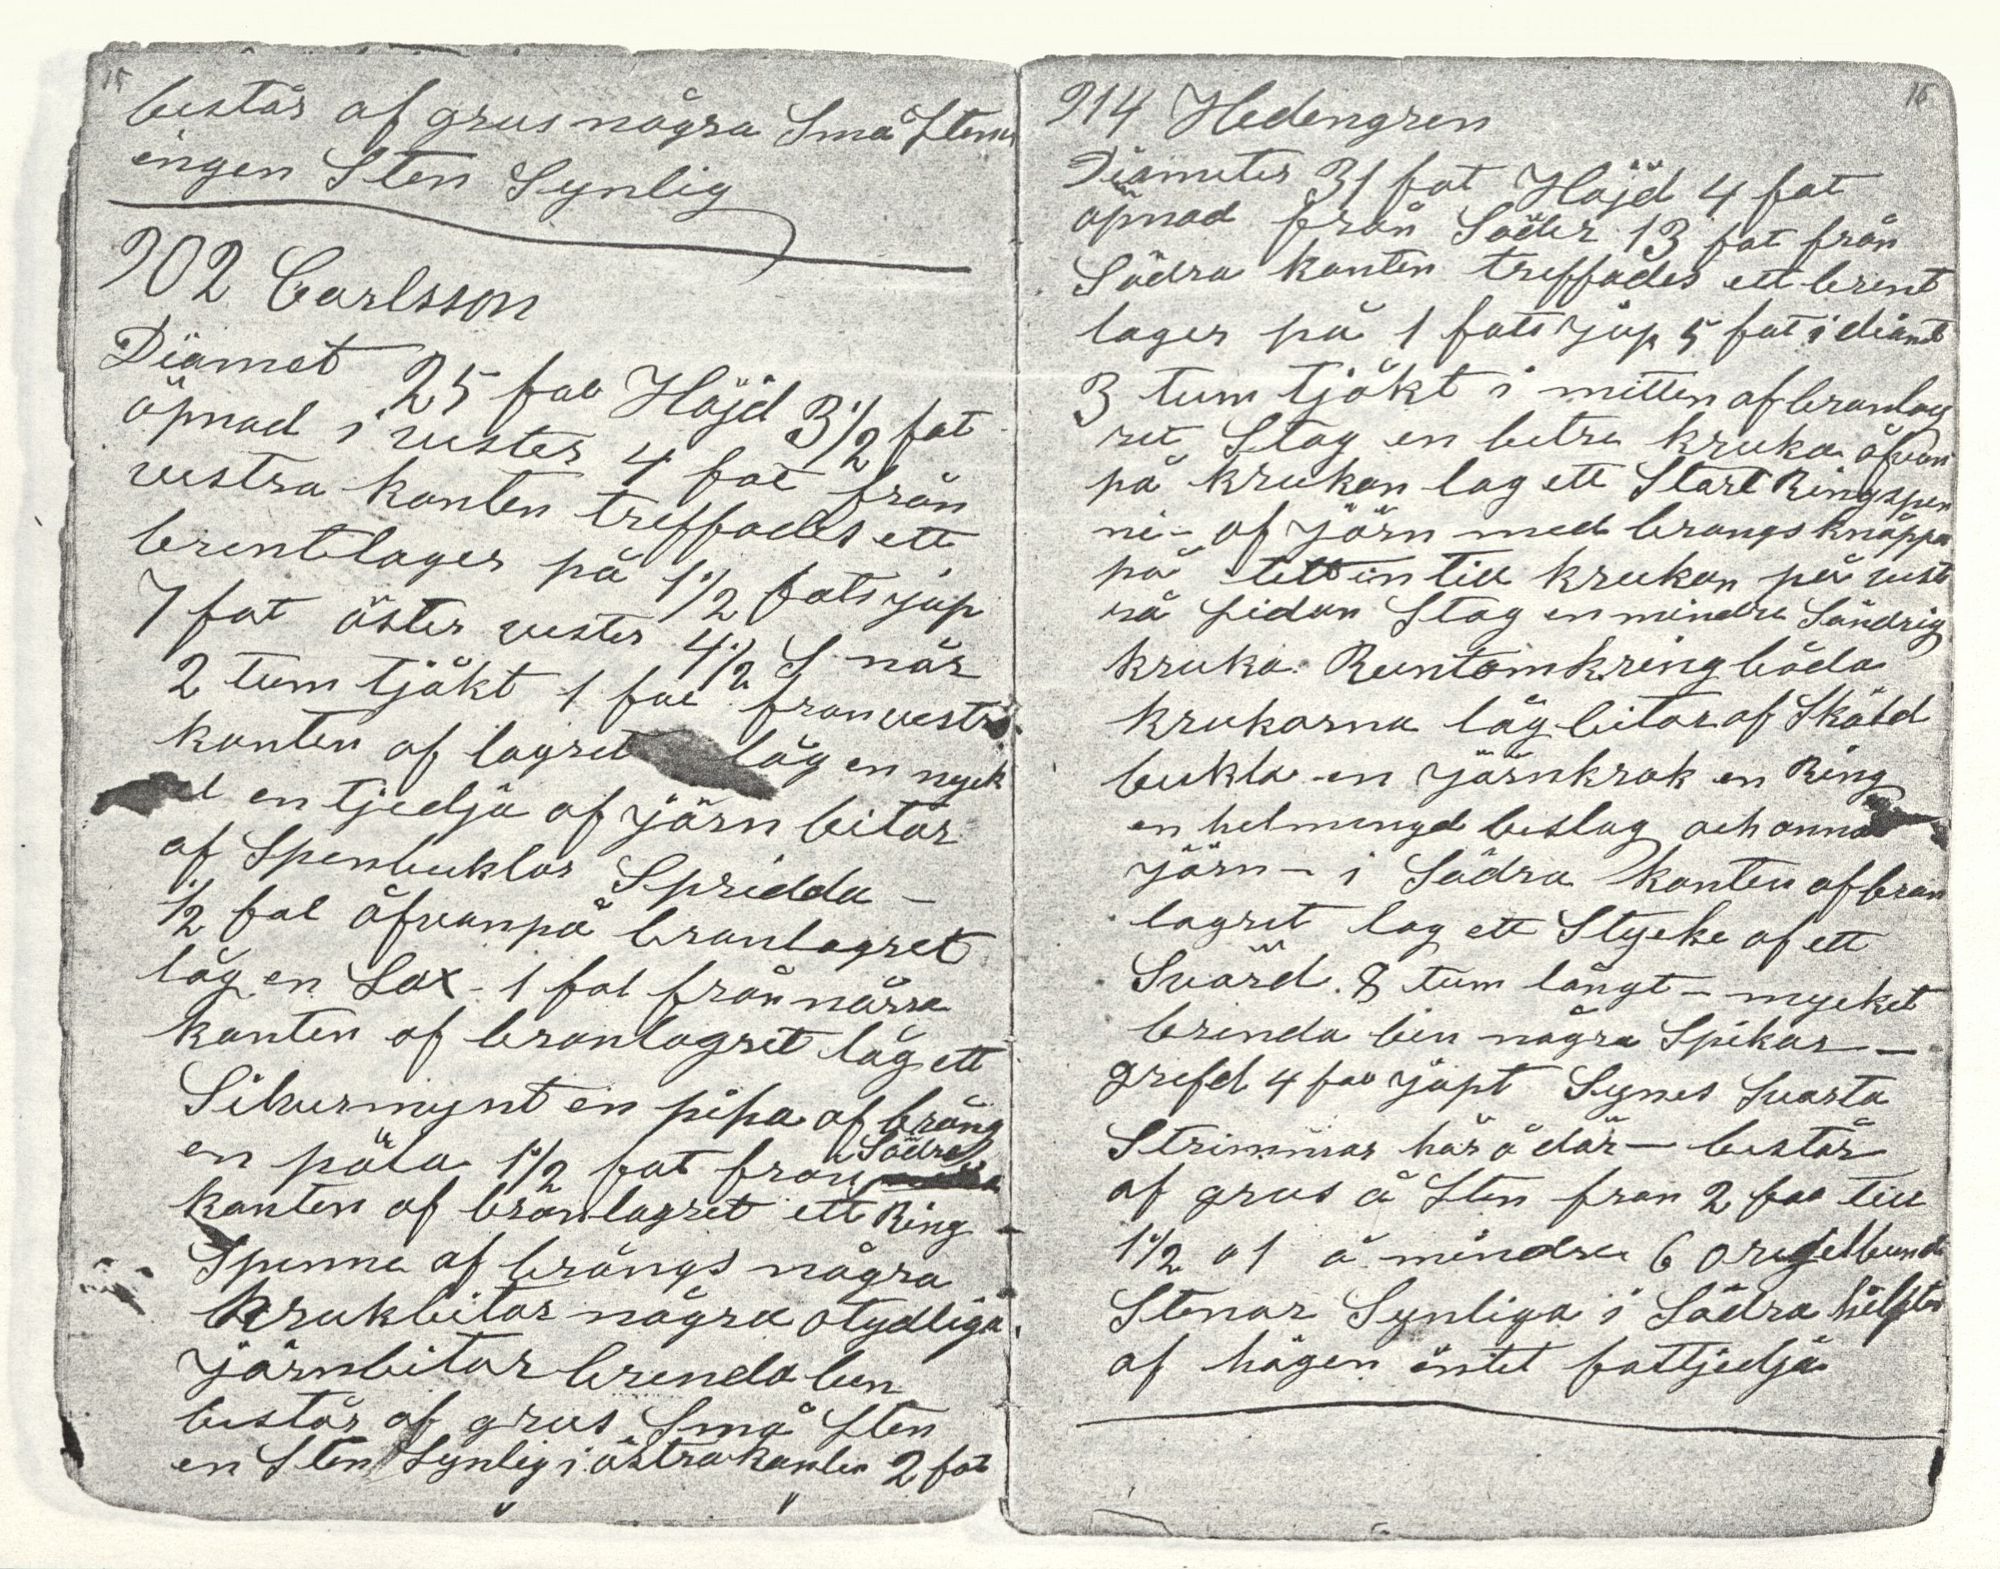 15
består af grus några Små Stenar
ingen Sten Synlig
902 Carlsson
Diamet 25 fot Höjd 3 1/2 fot
öpnad i vester 4 fot från
vestra kanten treffades ett
brentlager på 1 1/2 fots jup
7 fot öster vester 4 1/2 S når
2 tum tjökt 1 fot fron vestra
kanten af lagret låg en nyck
el en tjedja af järn bitar
af Spenbuklor Spridda -
1/2 fot åfvanpå branlagret
låg en Sax - 1 fot från nårra
kanten af branlagret låg ett
Silvermynt en pipa af brångs
en påla 1 1/2 fot fron Södra
kanten af brånlagret ett Ring
Spenne af brångs några
krukbitar några otydliga
järnbitar brenda ben
består af grus Små Sten
en Sten Synlig i östra kanten 2 fot
16
914 Hedengren
Diameter 31 fot Höjd 4 fot
öpnad från Söder 13 fot från
Södra kanten treffades ett brent
lager på 1 fots jup 5 fot i diamt
3 tum tjökt i mitten af branlag
ret Stog en betre kruka åfvan
på krukan lag ett Start Ringspen
ne - af järn med brangs knåppar
på tett in till krukan på vest
ra sidan Stog en mindre Söndrig
kruka. Runtomkring båda
krukorna låg bitar af Sköld
bukla en järnkrok en Ring
en helmengd beslag och annat
järn - i Södra kanten af bran
lagret lag ett Stycke af ett
Svärd. 8 tum långt - mycket
brenda ben några Spikar -
grefd 4 fot jupt Synes Svarta
Strimmor här å där - består
af grus å Sten fron 2 fot till
1 1/2 o 1 å mindre 6 oregelbund
Stenar Synliga i Södra helften
af högen äntet fottjedja